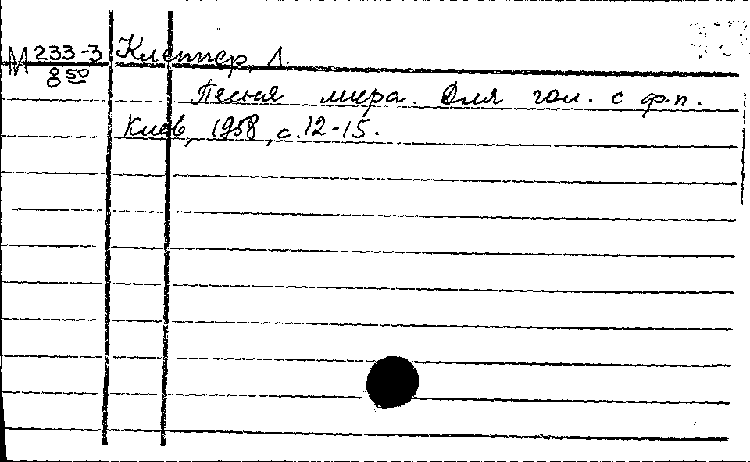 М 233-3 Клеппер, Л.
8 50
Песня мира. Для гол. с ф.п.
Киев, 1958, с. 12-15.